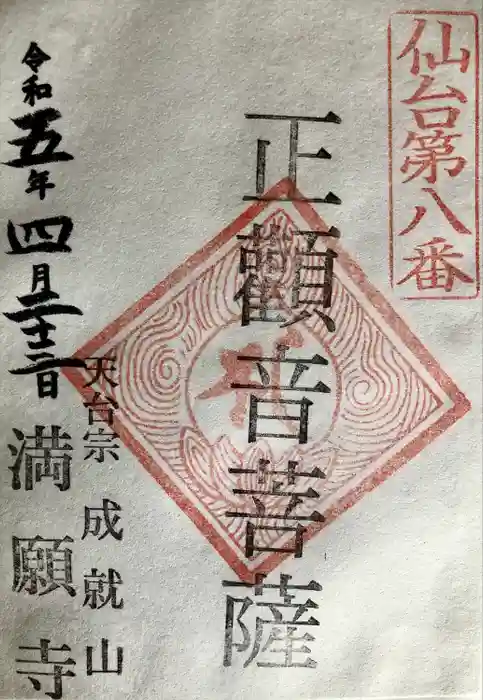 仙台第八番
正観音菩薩
天台宗 成就山
満願寺
令和五年四月二十二日